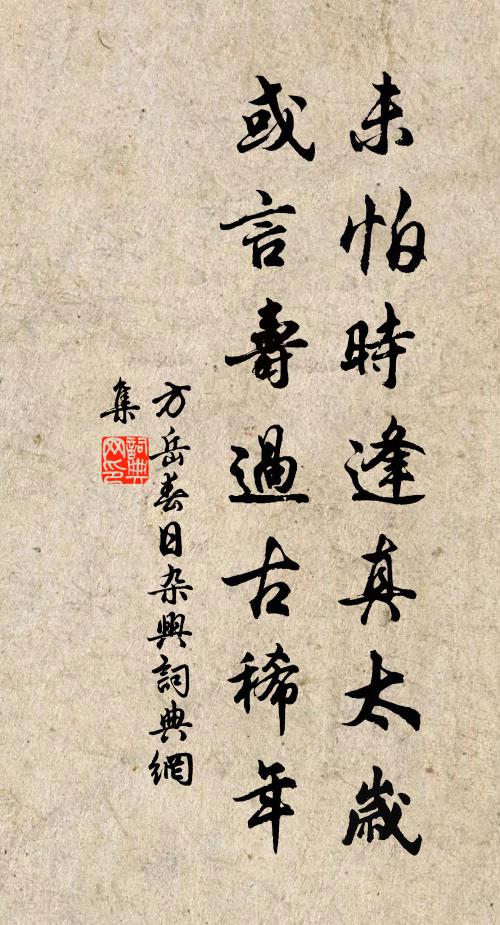 未怕時逢真太歲
或言壽過古稀年
方岳春日杂興詞典網
集
詞典网印